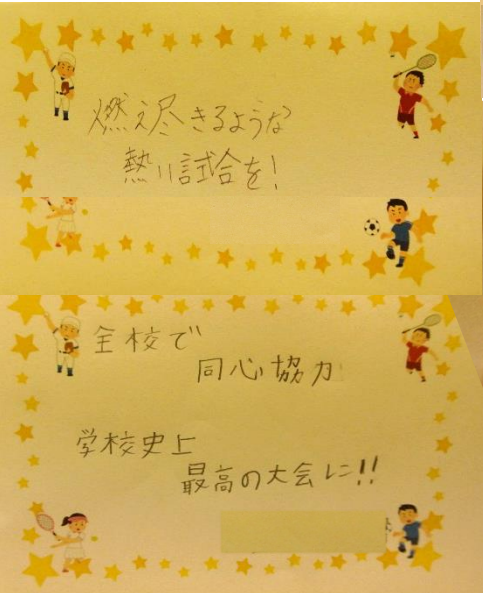 燃え尽きるような
熱い試合を!
全校で
同心協力
学校史上
最高の大会に!!